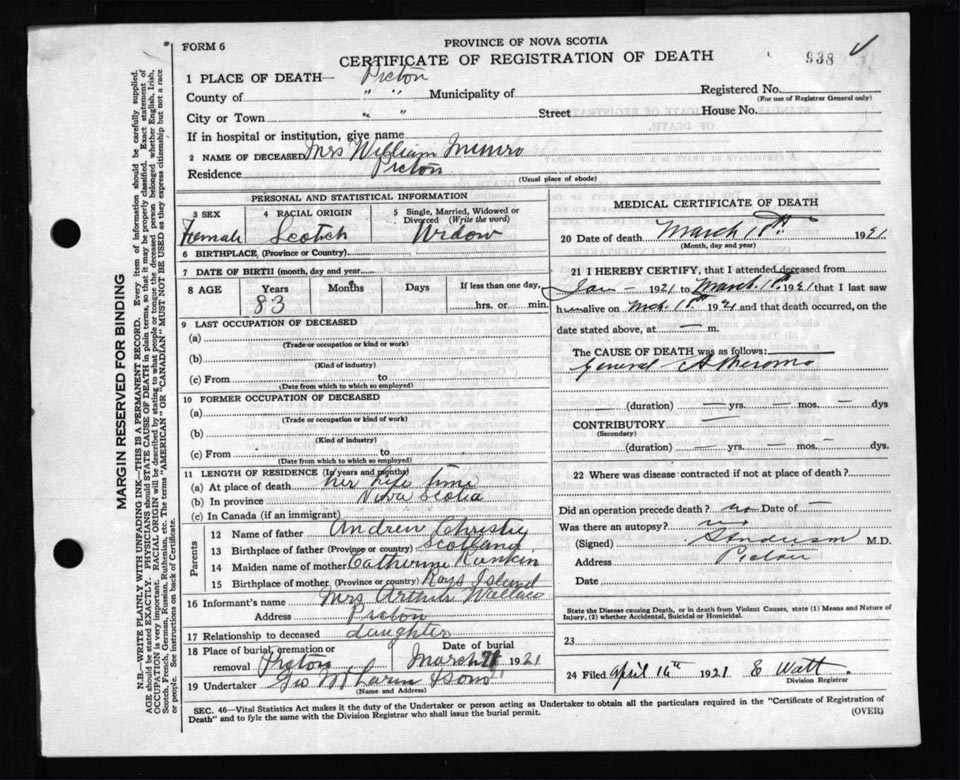 FORM 6
PROVINCE OF NOVA SCOTIA
CERTIFICATE OF REGISTRATION OF DEATH
938
1 PLACE OF DEATH— Pictou
County of " " Municipality of
Registered No.
(For use of Registrar General only)
City or Town " " Street House No.
If in hospital or institution, give name
2 NAME OF DECEASED Mrs William Munro
Residence Pictou
(Usual place of abode)
PERSONAL AND STATISTICAL INFORMATION
3 SEX
Female
4 RACIAL ORIGIN
Scotch
5 Single, Married, Widowed or
Divorced (Write the word)
Widow
6 BIRTHPLACE (Province or Country)
7 DATE OF BIRTH (month, day and year)
8 AGE Years Months Days If less than one day,
83
hrs. or min.
9 LAST OCCUPATION OF DECEASED
(a)
(Trade or occupation or kind or work)
(b)
(Kind of industry)
(c) From to
(Date from which to which so employed)
10 FORMER OCCUPATION OF DECEASED
(a)
(Trade or occupation or kind of work)
(b)
(Kind of industry)
(c) From to
(Date from which to which so employed)
11 LENGTH OF RESIDENCE (In years and months)
(a) At place of death her life time
(b) In province Nova Scotia
(c) In Canada (if an immigrant)
Parents
12 Name of father Andrew Christie
13 Birthplace of father (Province or country) Scotland
14 Maiden name of mother Catherine Rankin
15 Birthplace of mother (Province or country) Island
16 Informant's name Mrs Arthur Wallace
Address Pictou
17 Relationship to deceased daughter
18 Place of burial, cremation or
removal Pictou
Date of burial
March 1921
19 Undertaker Geo & Sons
(Name and Address)
MEDICAL CERTIFICATE OF DEATH
20 Date of death March 1921
(Month, day and year)
21 I HEREBY CERTIFY, that I attended deceased from
Jan — 1921 to March 1921 that I last saw
h alive on Mch 1921 and that death occurred, on the
date stated above, at — m.
The CAUSE OF DEATH was as follows:
General Atheroma
(duration) — yrs. — mos. — dys
CONTRIBUTORY —
(Secondary)
(duration) — yrs. — mos. — dys.
22 Where was disease contracted if not at place of death?
Did an operation precede death? no Date of —
Was there an autopsy? no
(Signed) M.D.
Address Pictou
Date
State the Disease causing Death, or in death from Violent Causes, state (1) Means and Nature of
Injury, (2) whether Accidental, Suicidal or Homicidal.
23
24 Filed April 1921 E Watt
Division Registrar
SEC. 46—Vital Statistics Act makes it the duty of the Undertaker or person acting as Undertaker to obtain all the particulars required in the "Certificate of Registration of
Death" and to fyle the same with the Division Registrar who shall issue the burial permit.
(OVER)
MARGIN RESERVED FOR BINDING
N.B.—WRITE PLAINLY WITH UNFADING INK—THIS IS A PERMANENT RECORD. Every item of information should be carefully supplied.
AGE should be stated EXACTLY. PHYSICIANS should STATE CAUSE OF DEATH in plain terms, so that it may be properly classified. Exact statement of
OCCUPATION is very important. RACIAL ORIGIN will be described by stating to what people or tongue the deceased person belonged whether English, Irish,
Scotch, French, German, Russian, Ruthenian, etc. The terms "AMERICAN" OR "CANADIAN" MUST NOT BE USED as they express citizenship but not a race
or people. See instructions on back of Certificate.